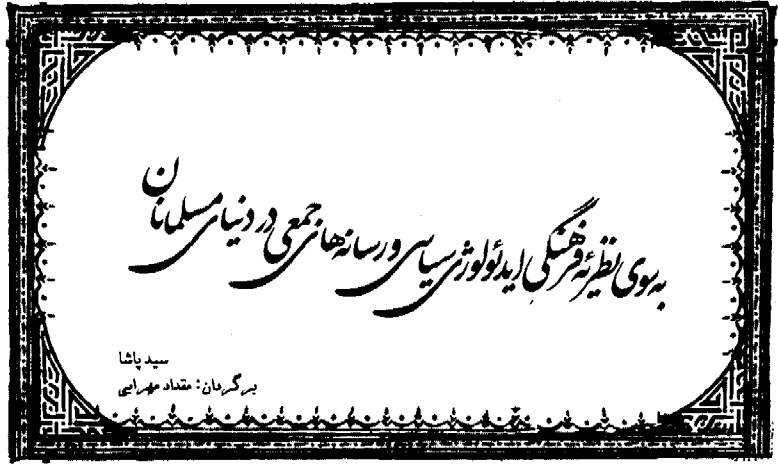 به سوی نظریهٔ فرهنگی ایدئولوژی سیاسی و رسانه‌های جمعی در دنیای مسلمانان
سید پاشا
برگردان: مقداد مهرابی